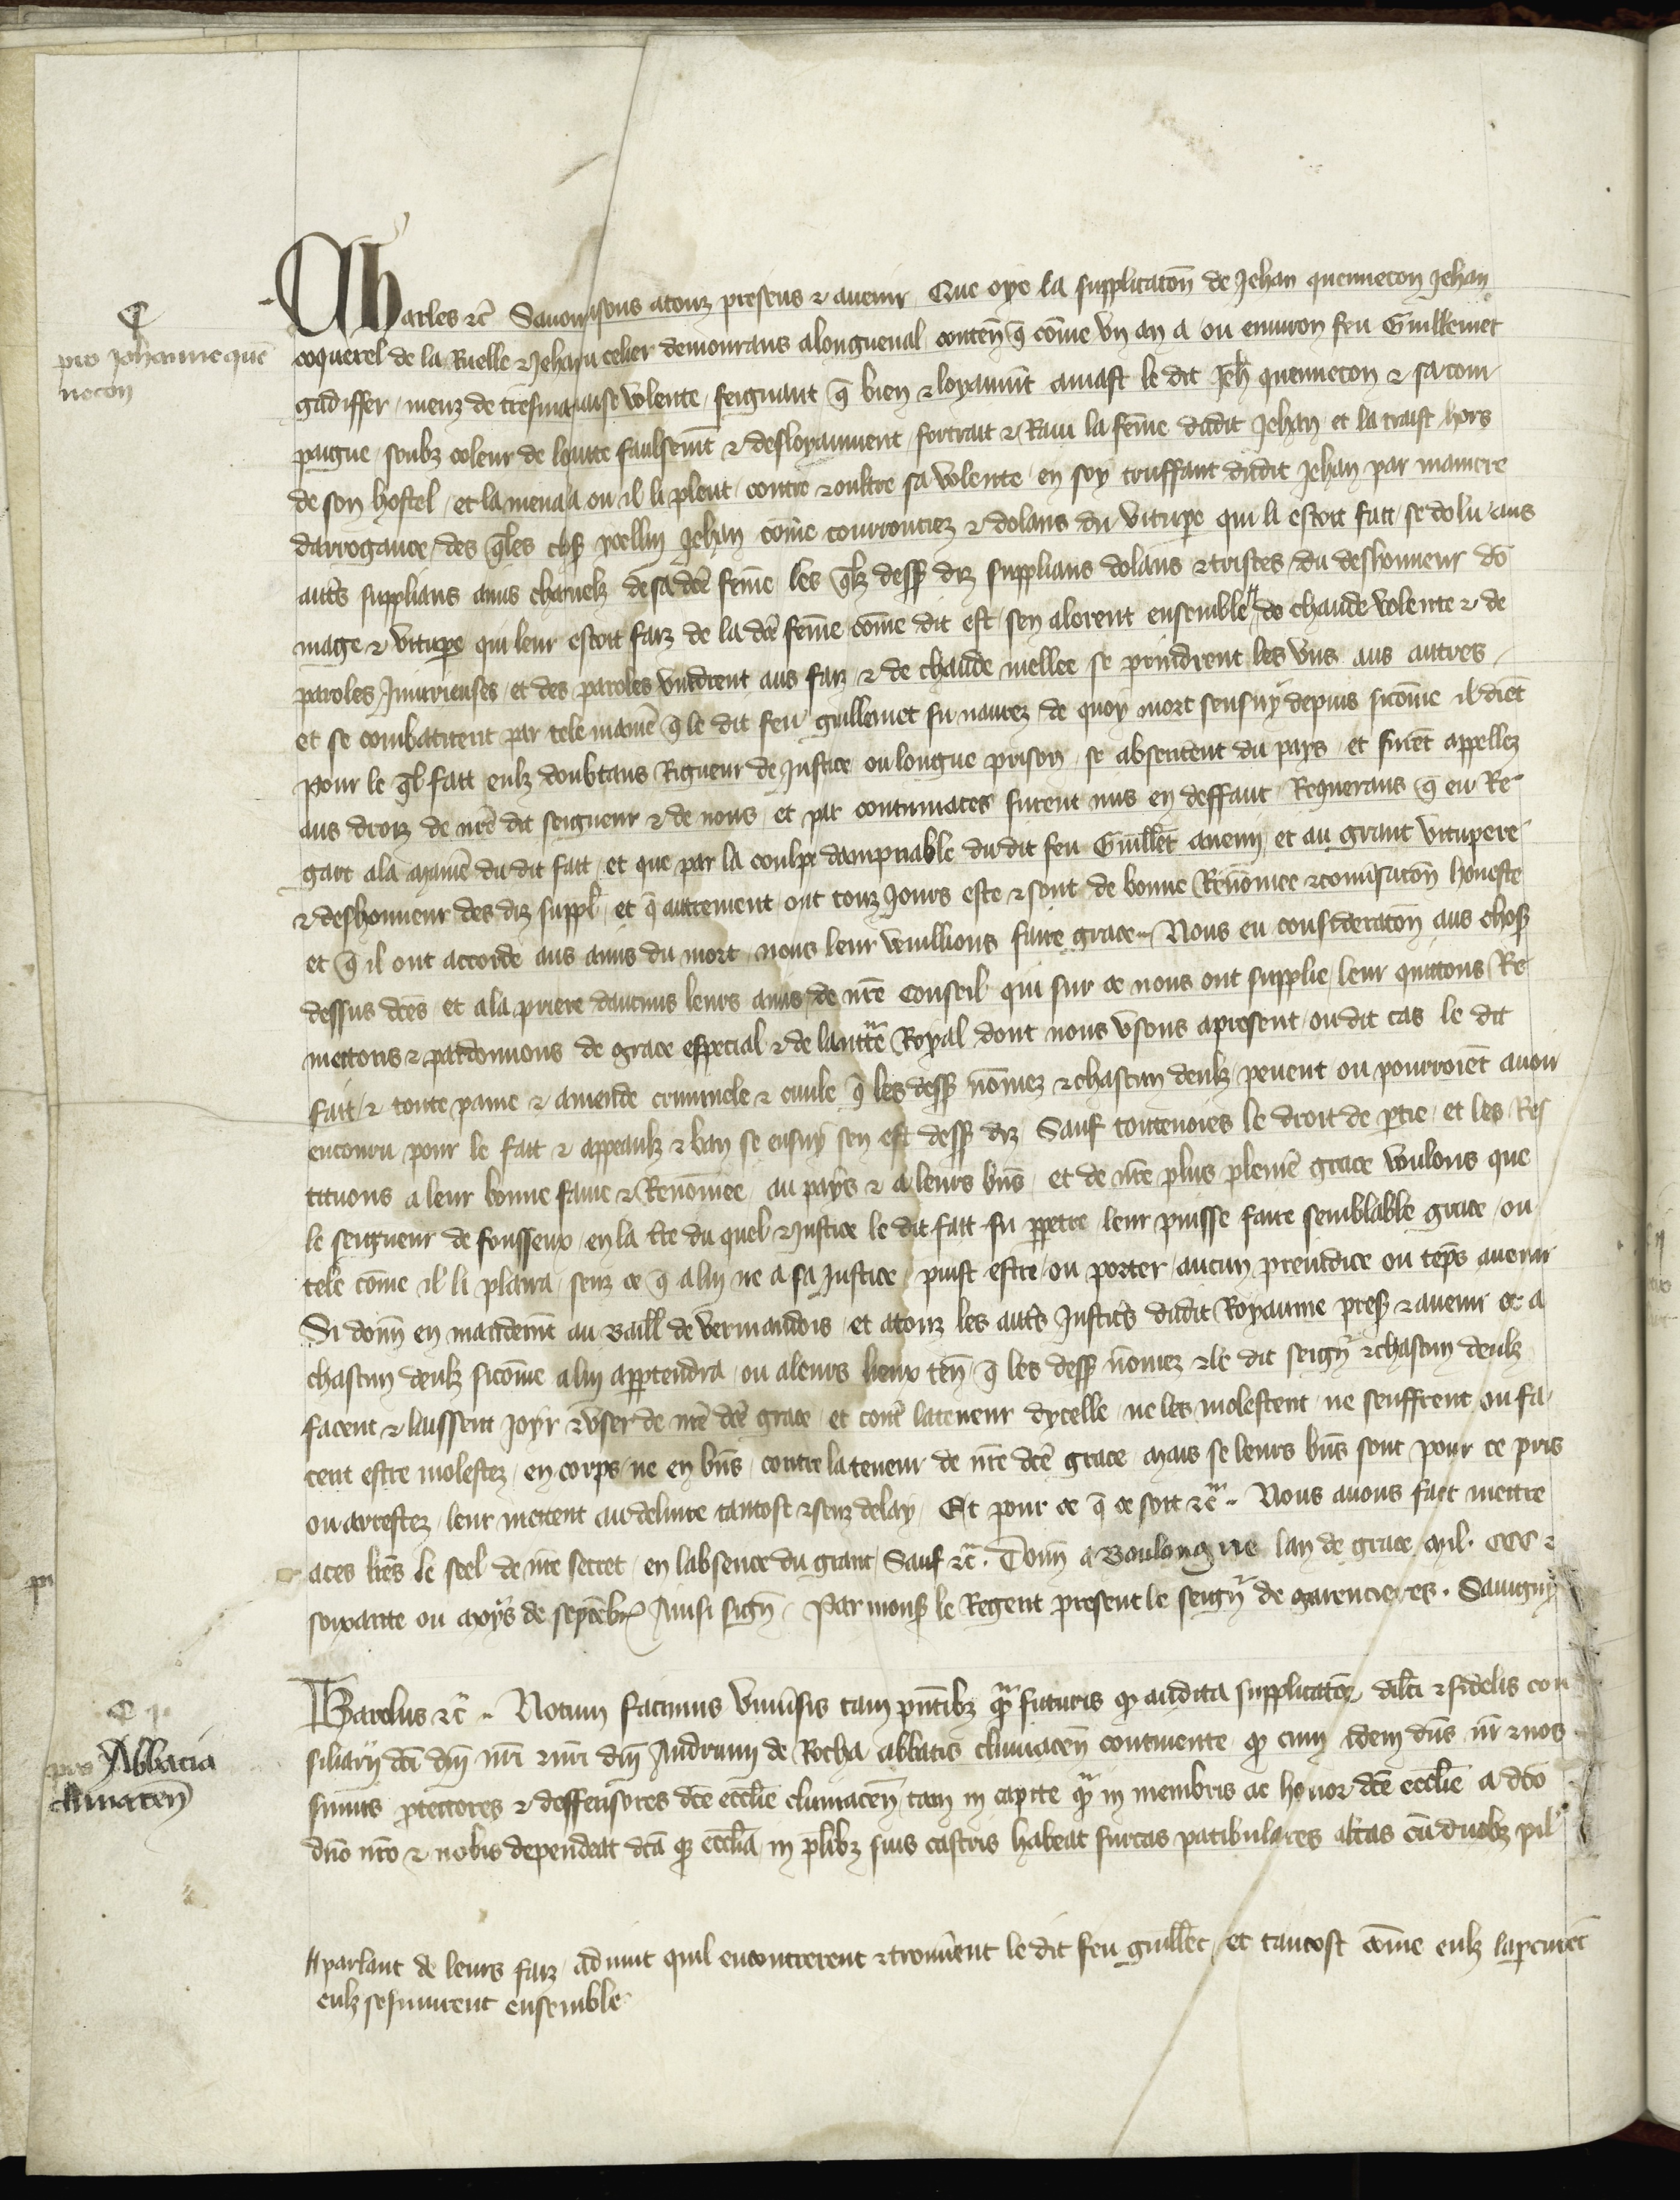 Charles &c̃ Savoir faisons a touz presens & avenir Que oye la supplicatõn de Jehan quennecon Jehan
pro Johanne quen
necon
coquerel de la Ruelle & Jehan celier demourans a longueval conteñ q̃ cõme un an a ou environ feu Guillemet
gadiffer meuz de tresmauvaise volente feignant q̃ bien & loyaumt̃ amast le dit Jeh̃ quennecon & sa com
paigne soubz coleur de laquele faulsemt̃ & desloyaument fortrait & Ravi la fẽme dudit Jehan et la traist hors
de son hostel et la mena la ou il li pleut contre & oultre sa volente en soy truffant dudit Jehan par maniere
darrogance des q̃les chos̃ ycellui Jehan cõme courrouciez & dolans du vitupe qui li estoit fait se dolu aus
aut̃s supplians amis charnelz de sa dc̃e fẽme les q̃lz dess̃ diz supplians dolans & tristes du deshonneur dõ
mage & vitupe qui leur estoit faiz de la dc̃e fẽme cõme dit est sen alerent ensemble // de chaude volente & de
paroles Jnjurieuses et des paroles vindrent aus faiz & de chaude mellee se prindrent les uns aus autres
et se combatirent par tele manie͂ q̃ le dit feu guillemet fu navrez de quoy mort sensuy depuis sicõme il diẽt
pour le q̃l fait eulz doubtans Rigueur de Justice ou longue prison se absentent du pays et furẽt appellez
aus droiz de nr̃e dit seigneur & de nous et par contumaces furent mis en deffaut Requerans q̃ eu Re
gart a la manie͂ du dit fait et que par la coulpe dampnable du dit feu Guillẽt avenu et au grant vitupere
& deshonneur des diz suppl̃ et q̃ autrement ont touz jours este & sont de bonne Renõmee & convsatõn honeste
et q̃ il ont accorde aus amis du mort nous leur vueillions faire grace Nous eu consideratõn aus chos̃
dessus dc̃es et a la priere daucuns leurs amis de nr̃e Conseil qui sur ce nous ont supplie leur quittons Re
mettons & pardonnons de grace especial & de lauctte͂ Royal dont nous usons a present ou dit cas le dit
fait & toute paine & amende criminele & civile q̃ les dess̃ nõmez & chascun deulz pevent ou pourroiẽt avoir
encouru pour le fait & appeaulz & ban se ensuy sen est dess̃ diz Sauf toutevoies le droit de ptie et les Res
tituons a leur bonne fame & Renõmee au pays & a leurs bñs et de nr̃e plus pleniẽ grace voulons que
le seigneur de fousseux en la tr̃e du quel & Justice le dit fait fu ppetre leur puisse faire semblable grace ou
tele cõme il li plaira senz ce q̃ a lui ne a sa justice puist estre ou porter aucun prejudice ou tẽps avenir
Si donñ en mandemt̃ au Baill̃ de vermandois et a touz les aut̃s Justic̃s dudit Royaume pres̃ & avenir et a
chascun deulz sicõme a lui apptendra ou a leurs lieux teñ q̃ les dess̃ nõmez & le dit seigñr & chascun deulz
facent & laissent joyr & user de nr̃e dc̃e grace et contre la teneur dycelle ne les molestent ne seuffrent ou fa
cent estre molestez en corps ne en bñs contre la teneur de nr̃e dc̃e grace Mais se leurs bñs sont pour ce pris
ou arrestez leur mettent au delivre tantost & senz delay Et pour ce q̃ ce soit &c̃ Nous avons fait mettre
a ces lr̃es le scel de nr̃e secret en labsence du grant Sauf &c̃ Donñ a Boulongne lan de grace Mil CCC &
soixante ou moys de septẽbr̃ Ainsi sign̄ Par mons̃ le Regent present le seigñr de garencieres Savigny
pro Abbacia
cluniaceñ
Karolus &c̃ Notum facimus uniṽsis tam pñtibz q̃ futuris q̃ audita supplicatõe dilc̃i & fidelis con
siliarij dc̃i dñi nr̃i & nr̃i dñi Andruini de Rocha abbatis cluniaceñ continente q̃ cum idem dñs nr̃ & nos
simus ptectores & deffensores dc̃e eccl̃ie cluniaceñ tam in capite q̃ in membris ac honor dc̃e eccl̃ie a dc̃o
dño nr̃o & nobis dependeat dc̃a q̃ eccl̃ia in pl̃ibz suis castris habeat furcas patibulares altas cũ duobz pil
// parlant de leurs faiz advint quil encontrerent & trouverent le dit feu guillẽt et tantost cõme eulz laperceurẽt
eulz sesmurent ensemble